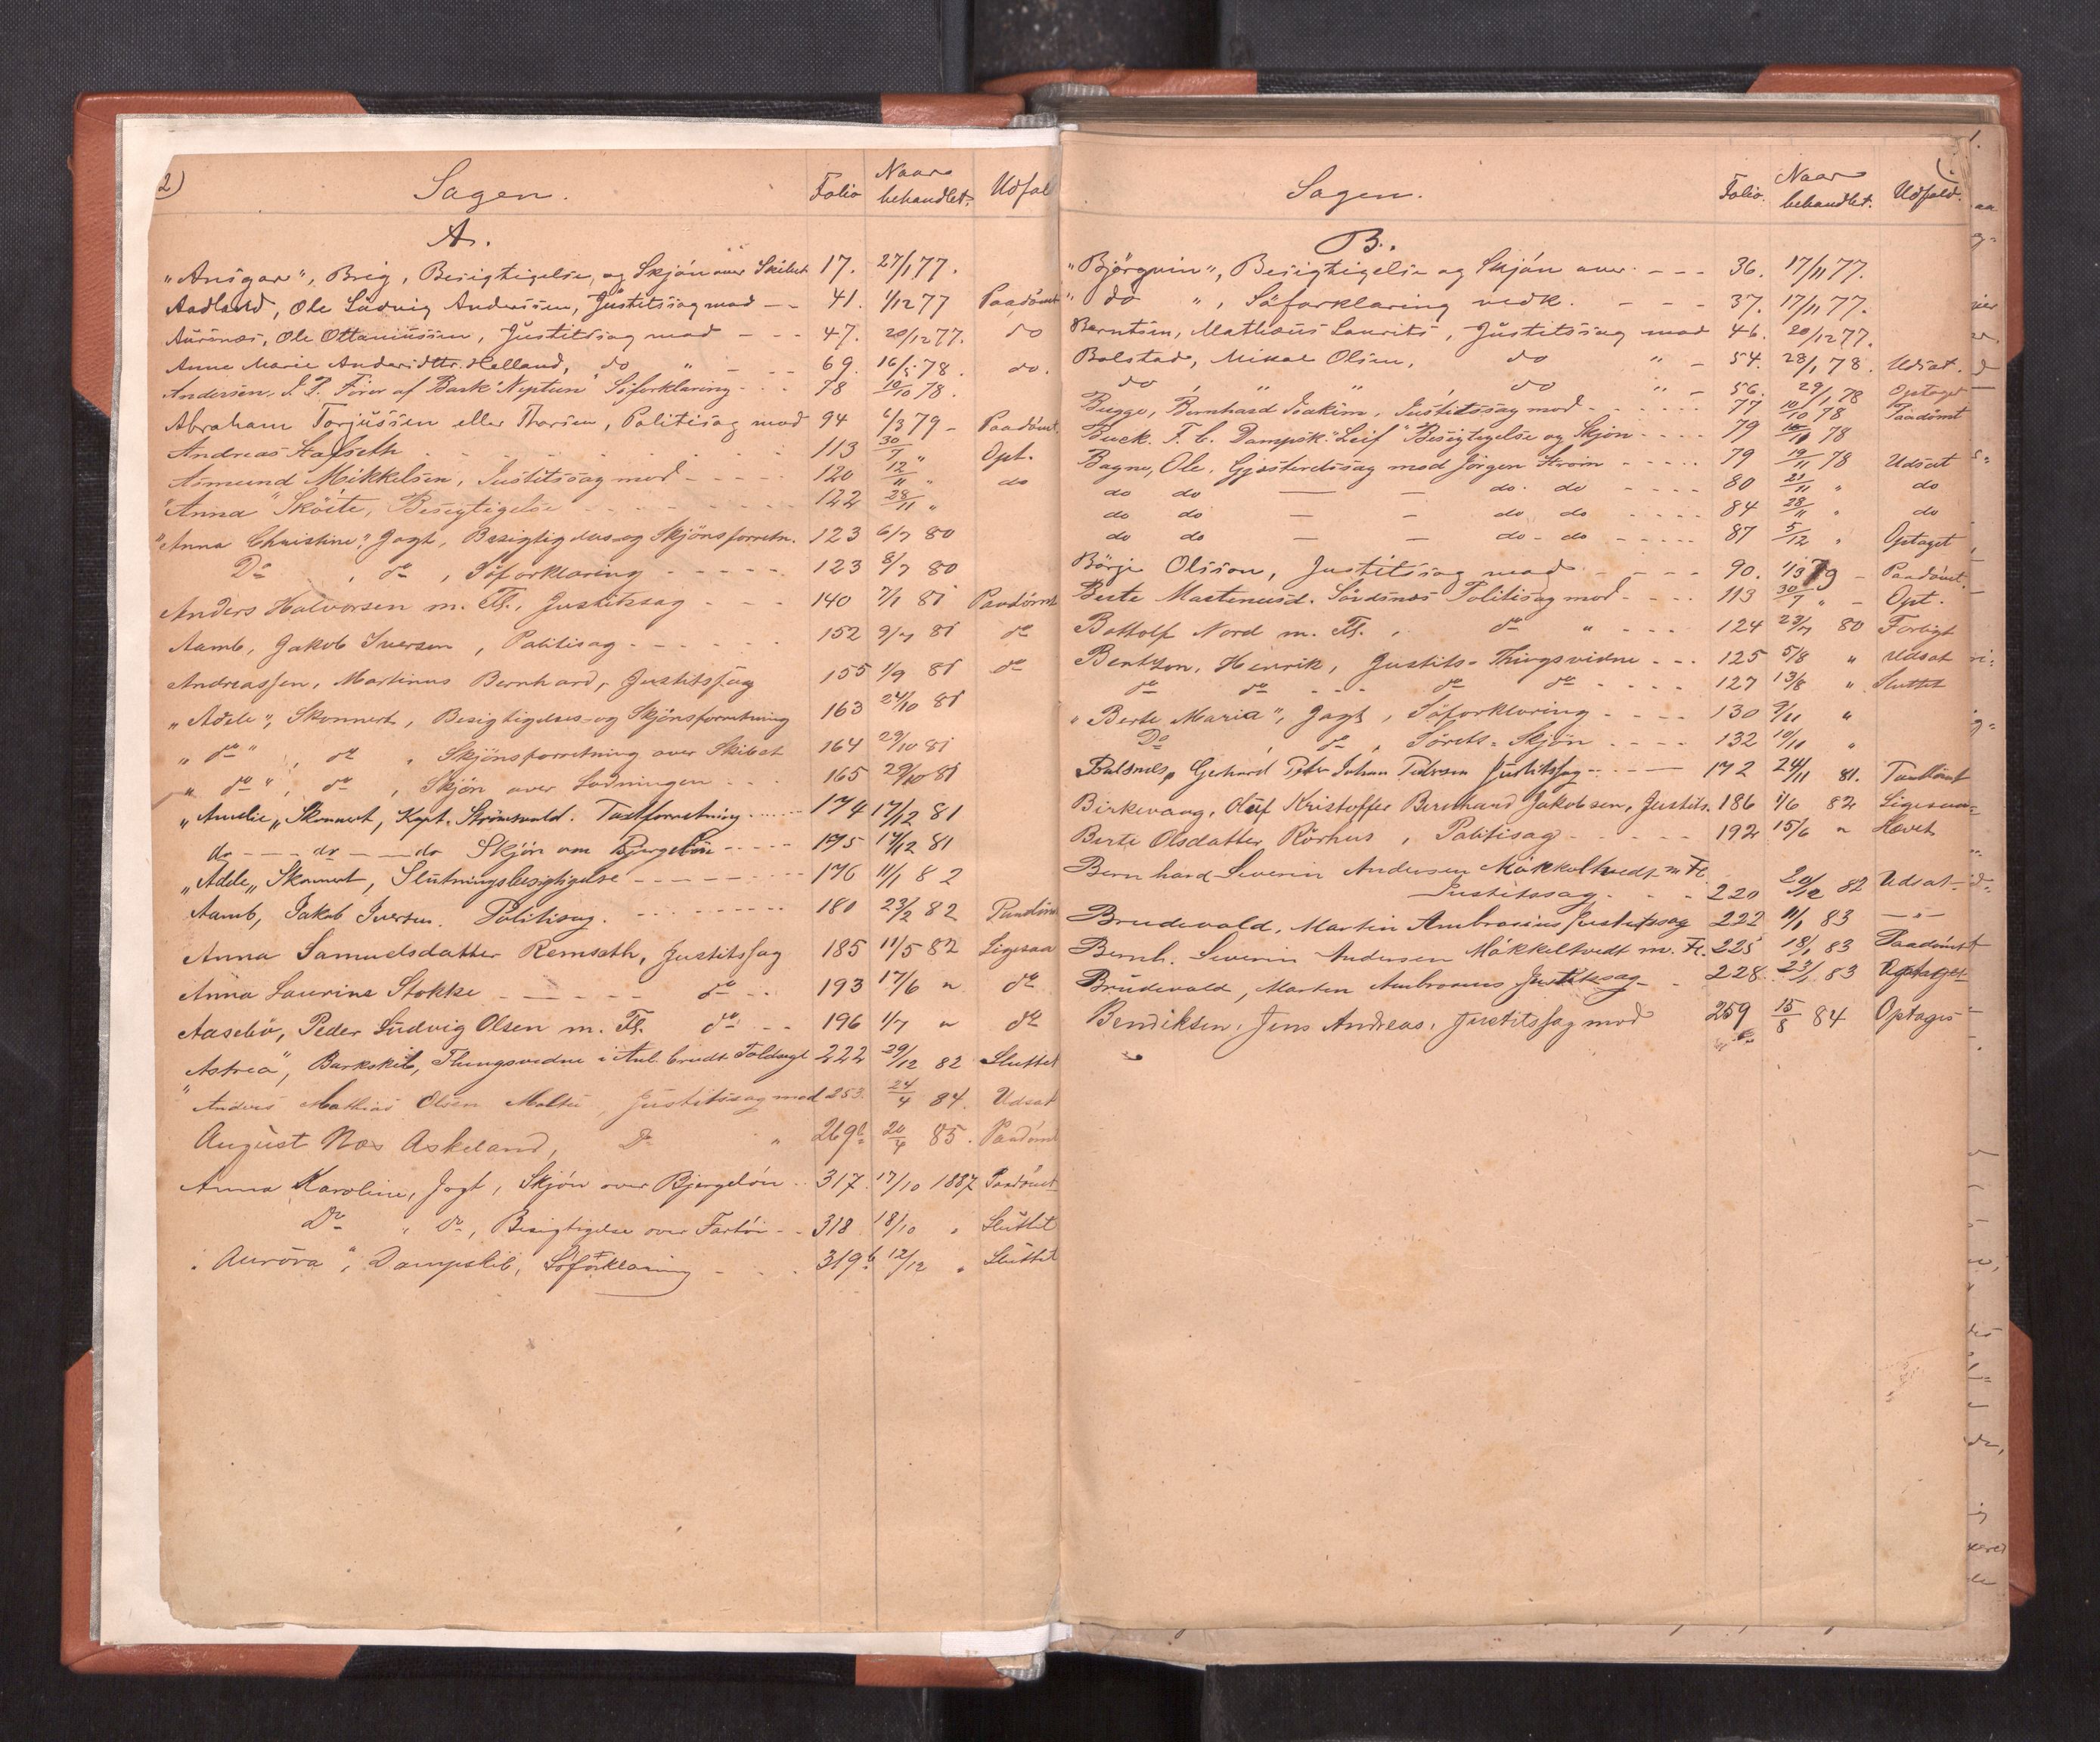 2)
Sagen. Folio Naar behandlet. Udfal
A.
"Ansgar", Brig, Besigtigelse og Skjön over Skibet 17. 27/1 77.
Aadland, Ole Ludvig Anderssen, Justitssag mod - - 41. 1/12 77 Paadömt
Aurönæs, Ole Ottaniussen, Justitssag mod - - - 47. 20/12 77. do
Anne Marie Andersdttr. Helland, do " - - - 69. 16/5 78. do.
Andersen, J. P. Förer af Bark "Neptun" Söforklaring - - - 78 10/10 78.
Abraham Torjussen eller Thorsen, Politisag mod 94 6/3 79 - Paadömt.
Andreas Stafseth - - - 113 30/7 " Opt.
Asmund Mikkelsen, Justitssag mod - - - - - 120 12/11 " do
"Anna" Sköite, Besigtigelse - - - - - 122 28/11 "
"Anna Christine", Jagt, Besigtigelses- og Skjönsforretn. 123 6/7 80
Do , do , Söforklaring - - - - - 123 8/7 80
Anders Halvorsen m. Fl., Justitssag - - - 140 7/1 81 Paadömt
Aamb, Jakob Iversen, Politisag - - - - - 152 9/7 81 do
Andreassen, Martinus Bernhard, Justitssag 155 1/9 81 do
"Adele", Skonnert, Besigtigelses- og Skjönsforretning 163 24/10 81
" do " , do , Skjönsforretning over Skibet 164 29/10 81
" do " , do , Skjön over Ladningen - - - 165 29/10 81
"Amelie" Skonnert, Kapt. Strömsvold. Taxtforretning - - - - 174 17/12 81
do - - - do - - - do Skjön om Bjergelön - - - - - 175 17/12 81
"Adele" Skonnert, Slutningsbesigtigelse - - - - - - 176 11/1 82
Aamb, Jakob Iversen. Politisag. - - - - - - 180 23/2 82 Paadöm
Anna Samuelsdatter Remseth, Justitssag 185 11/5 82 Ligesaa
Anna Laurine Stokke - - - - - do - - 193 17/6 " do
Aasebö, Peder Ludvig Olsen m. Fl. do - - - 196 1/7 " do
"Astrea", Barkskib, Thingsvidne i Anl. brudt Toldsegl 222 29/12 82 Sluttet
Anders Mathias Olsen Maltu, Justitssag mod 253. 24/4 84. Udsat
August Næs Askeland, Do " 269b. 20/4 85. Paadömt
Anna Karoline, Jagt, Skjön over Bjergelön - - 317. 17/10 1887 Paadömt
Do " Do, Besigtigelse over Fartöi - - 318 18/10 " Sluttet
"Aurora", Dampskib, Söforklaring - - - 319b. 12/12 " Sluttet
Sagen. Folio. Naar behandlet. Udfald.
B.
"Björgvin", Besigtigelse og Skjön over - - - 36. 17/11 77.
" do " , Söforklaring vedk. - - - 37. 17/11 77.
Berntsen, Mathæus Laurits, Justitssag mod 46. 20/12 77.
Bolstad, Mikal Olsen, do " - 54. 23/1 78. Udsat.
do " " , do " - 56. 29/1 78 Optaget
Bugge, Bernhard Joakim, Justitssag mod - - - - - 77 10/10 78 Paadömt
Buck. F. C. Dampsk. "Leif" Besigtigelse og Skjön - - - - 79 18/10 78
Bagne, Ole. Gjesteretssag mod Jörgen Ström - - - - - 79 19/11 78 Udsat
do do — — do. do - - - - 80 21/11 " do
do do — — do do - - - - 84 28/11 " do
do do — — do - do - - - - - 87 5/12 " Optaget
Börje Olsson, Justitssag mod - - - - 90. 1/3 79 - Paadömt.
Berte Martenusd. Sördsnes Politisag mod - - - - 113 30/7 " - Opt.
Botholf Nord m. Fl. , do " - - - 124 23/7 80 Forligt
Bentzon, Henrik, Justits-Thingsvidne - - - 125 5/8 " Udsat
do do - - - do do - - - - 127 13/8 " Sluttet
"Berte Maria", Jagt, Söforklaring - - - - 130 9/11 "
Do , do , Sörets-Skjön - - - - 132 10/11 "
Gehard Peter Johan Pedersen Justitssag - - - - 172 24/11 81. Paadömt
Birkevaag, Oluf Kristoffer Bernhard Jakobsen, Justits. 186 1/6 82 Ligesaa
Berte Olsdatter Rörhus, Politisag - - - - - 192 15/6 " Hævet
Bernhard Severin Andersen Mökkeltvedt m. Fl.
Justitssag - - - 220 20/12 82 Udsat
Brudevold, Martin Ambrosius Justitssag 222 11/1 83 — " —
Bernh. Severin Andersen Mökkeltvedt m. Fl. 225 18/1 83 Paadömt
Brudevold, Martin Ambrosius Justitssag - - 228. 23/1 83 Optaget
Bendiksen, Jens Andreas, Justitssag mod 259 15/8 84 Optages